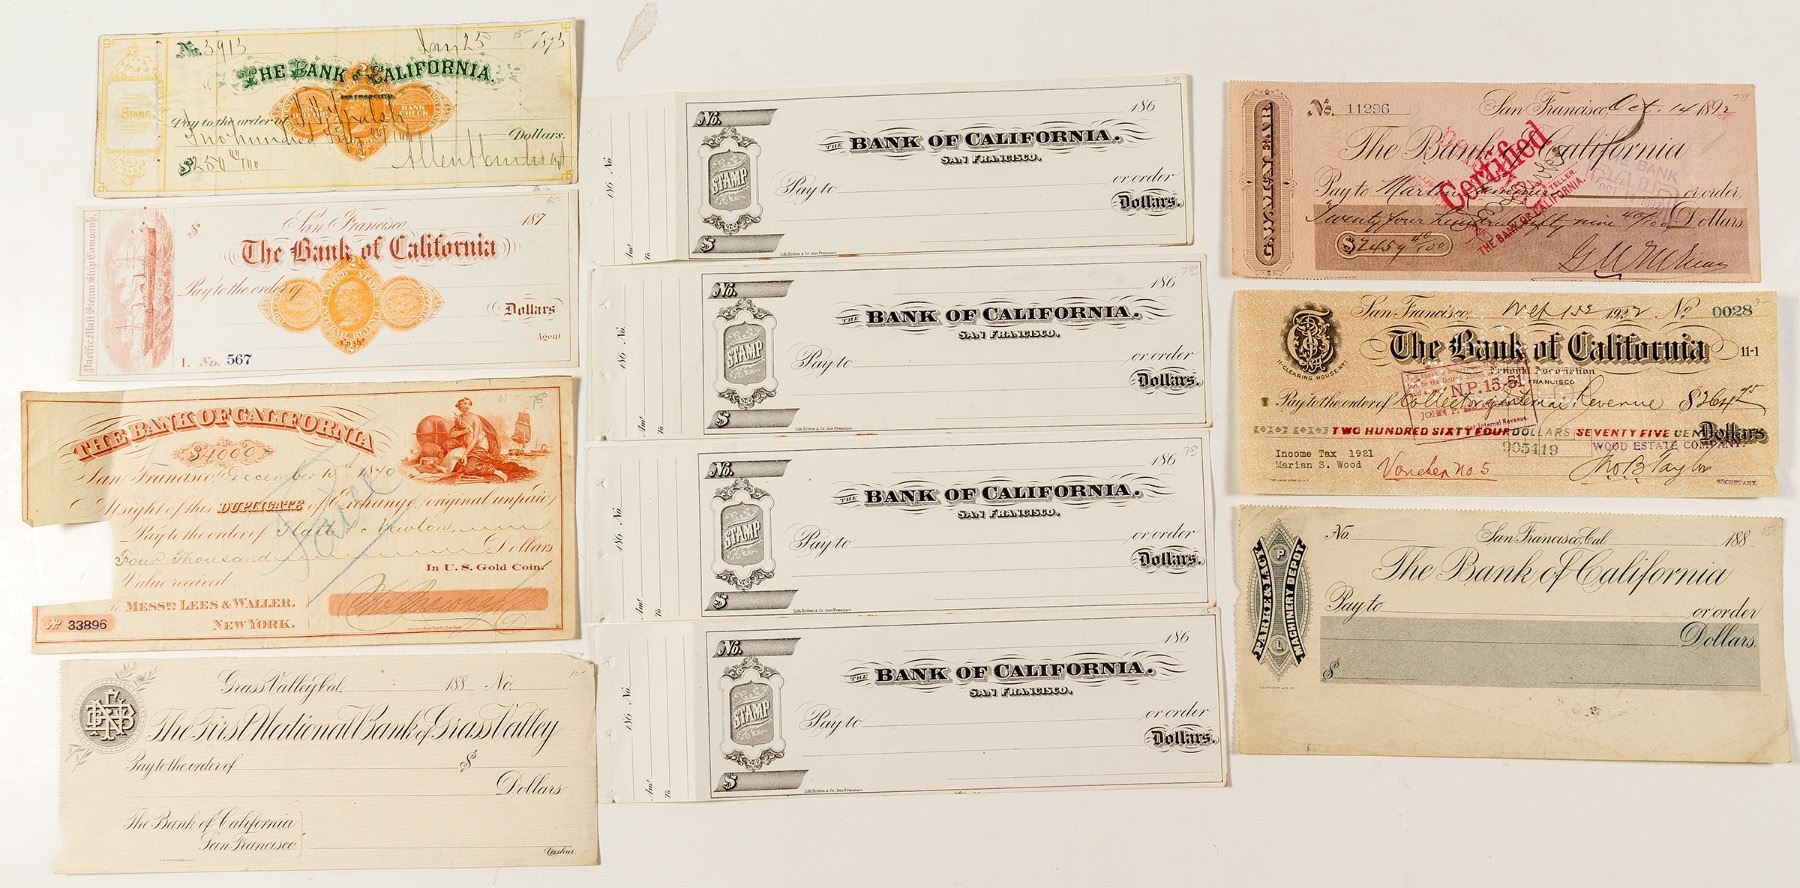 No. 3913 Jany 25 1873
THE BANK OF CALIFORNIA.
SAN FRANCISCO
STAMP
BANK CHECK
Pay to the order of
Two hundred fifty Dollars.
$250 00/100
Pacific Mail Steam Ship Company.
$ San Francisco, 187
The Bank of California
Pay to the order of
Dollars
Agent
1. No. 567
THE BANK OF CALIFORNIA
$4000
San Francisco, December 15th 1870
At sight of this DUPLICATE of Exchange (original unpaid)
Pay to the order of Newton
Four Thousand Dollars
Value received. In U.S. Gold Coin.
To MESSRS LEES & WALLER.
NEW YORK.
No 33896
FNB
Grass Valley, Cal. 188 No.
The First National Bank of Grass Valley
Pay to the order of $
Dollars
The Bank of California
San Francisco.
Cashier
186 No.
Amt
To
No. 186
THE BANK OF CALIFORNIA.
SAN FRANCISCO.
STAMP
Pay to or order
Dollars.
$
Lith. Britton & Co. San Francisco.
186 No.
Amt
To
No. 186
THE BANK OF CALIFORNIA.
SAN FRANCISCO.
STAMP
Pay to or order
Dollars.
$
Lith. Britton & Co. San Francisco.
186 No.
Amt
To
No. 186
THE BANK OF CALIFORNIA.
SAN FRANCISCO.
STAMP
Pay to or order
Dollars.
$
Lith. Britton & Co. San Francisco.
186 No.
Amt
To
No. 186
THE BANK OF CALIFORNIA.
SAN FRANCISCO.
STAMP
Pay to or order
Dollars.
$
Lith. Britton & Co. San Francisco.
No. 11296 San Francisco, Oct. 14 1892
The Bank of California
Certified
TELLER
THE BANK OF CALIFORNIA.
Pay to or order,
Twenty four hundred fifty nine 40/100 Dollars
$2459 40/100
San Francisco, 1922 No 0028
The Bank of California 11-1
National Association
SAN FRANCISCO
CLEARING HOUSE No 1
Pay to the order of Collector of Internal Revenue $264 75
N.P. 15-51
TWO HUNDRED SIXTY FOUR DOLLARS SEVENTY FIVE CENTS Dollars
905419 WOOD ESTATE COMPANY
Income Tax 1921
Marian S. Wood
Voucher No. 5
Jno B Taylor
SECRETARY.
PARKE & LACY
MACHINERY DEPOT
P
L
No. San Francisco, Cal. 188
The Bank of California
Pay to or order
Dollars.
$